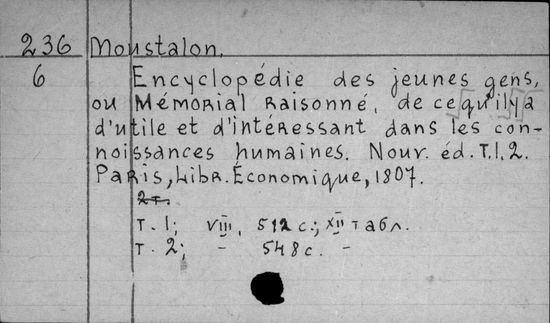 236 Moustalon.
6 Encyclopédie des jeunes gens,
ou Mémorial raisonné, de ce qu'il y a
d'utile et d'intéressant dans les con-
noissances humaines. Nouv. éd. T.1.2.
Paris, Libr. Économique, 1807.
2 т.
Т. 1; VIII, 512 с.; XII табл.
Т. 2; – 548 с. –